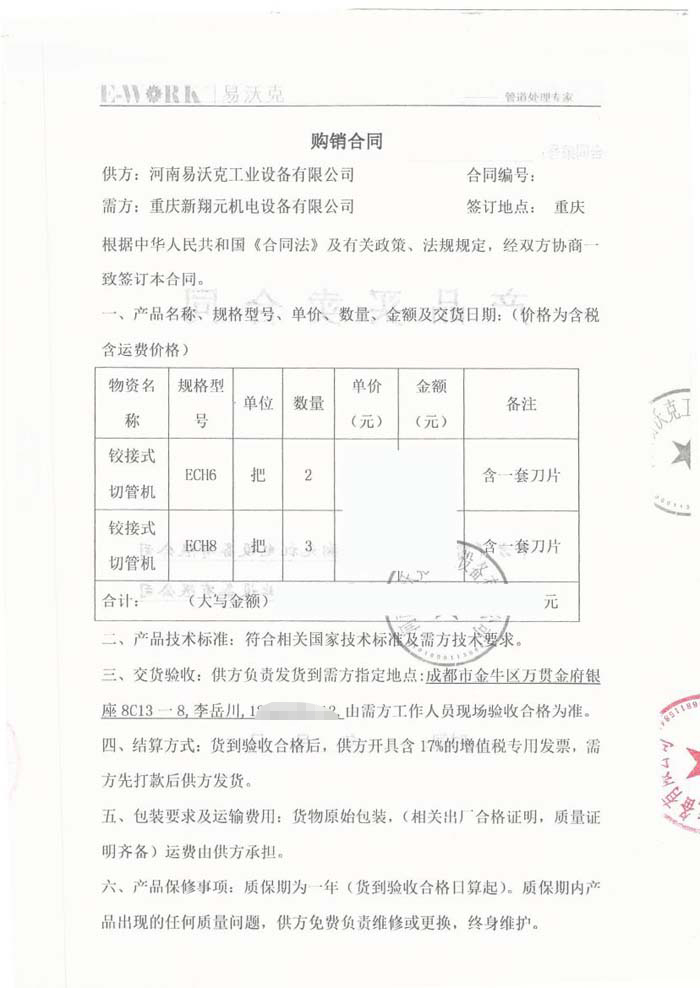 E-WORK 易沃克
管道处理专家
购销合同
供方：河南易沃克工业设备有限公司 合同编号：
需方：重庆新翔元机电设备有限公司 签订地点： 重庆
根据中华人民共和国《合同法》及有关政策、法规规定，经双方协商一
致签订本合同。
一、产品名称、规格型号、单价、数量、金额及交货日期：（价格为含税
含运费价格）
物资名称 规格型号 单位 数量 单价（元） 金额（元） 备注
铰接式切管机 ECH6 把 2 含一套刀片
铰接式切管机 ECH8 把 3 含一套刀片
合计： （大写金额） 元
二、产品技术标准：符合相关国家技术标准及需方技术要求。
三、交货验收：供方负责发货到需方指定地点:成都市金牛区万贯金府银
座8C13一8,李岳川,由需方工作人员现场验收合格为准。
四、结算方式：货到验收合格后，供方开具含17%的增值税专用发票，需
方先打款后供方发货。
五、包装要求及运输费用：货物原始包装，（相关出厂合格证明，质量证
明齐备）运费由供方承担。
六、产品保修事项：质保期为一年（货到验收合格日算起）。质保期内产
品出现的任何质量问题，供方免费负责维修或更换，终身维护。